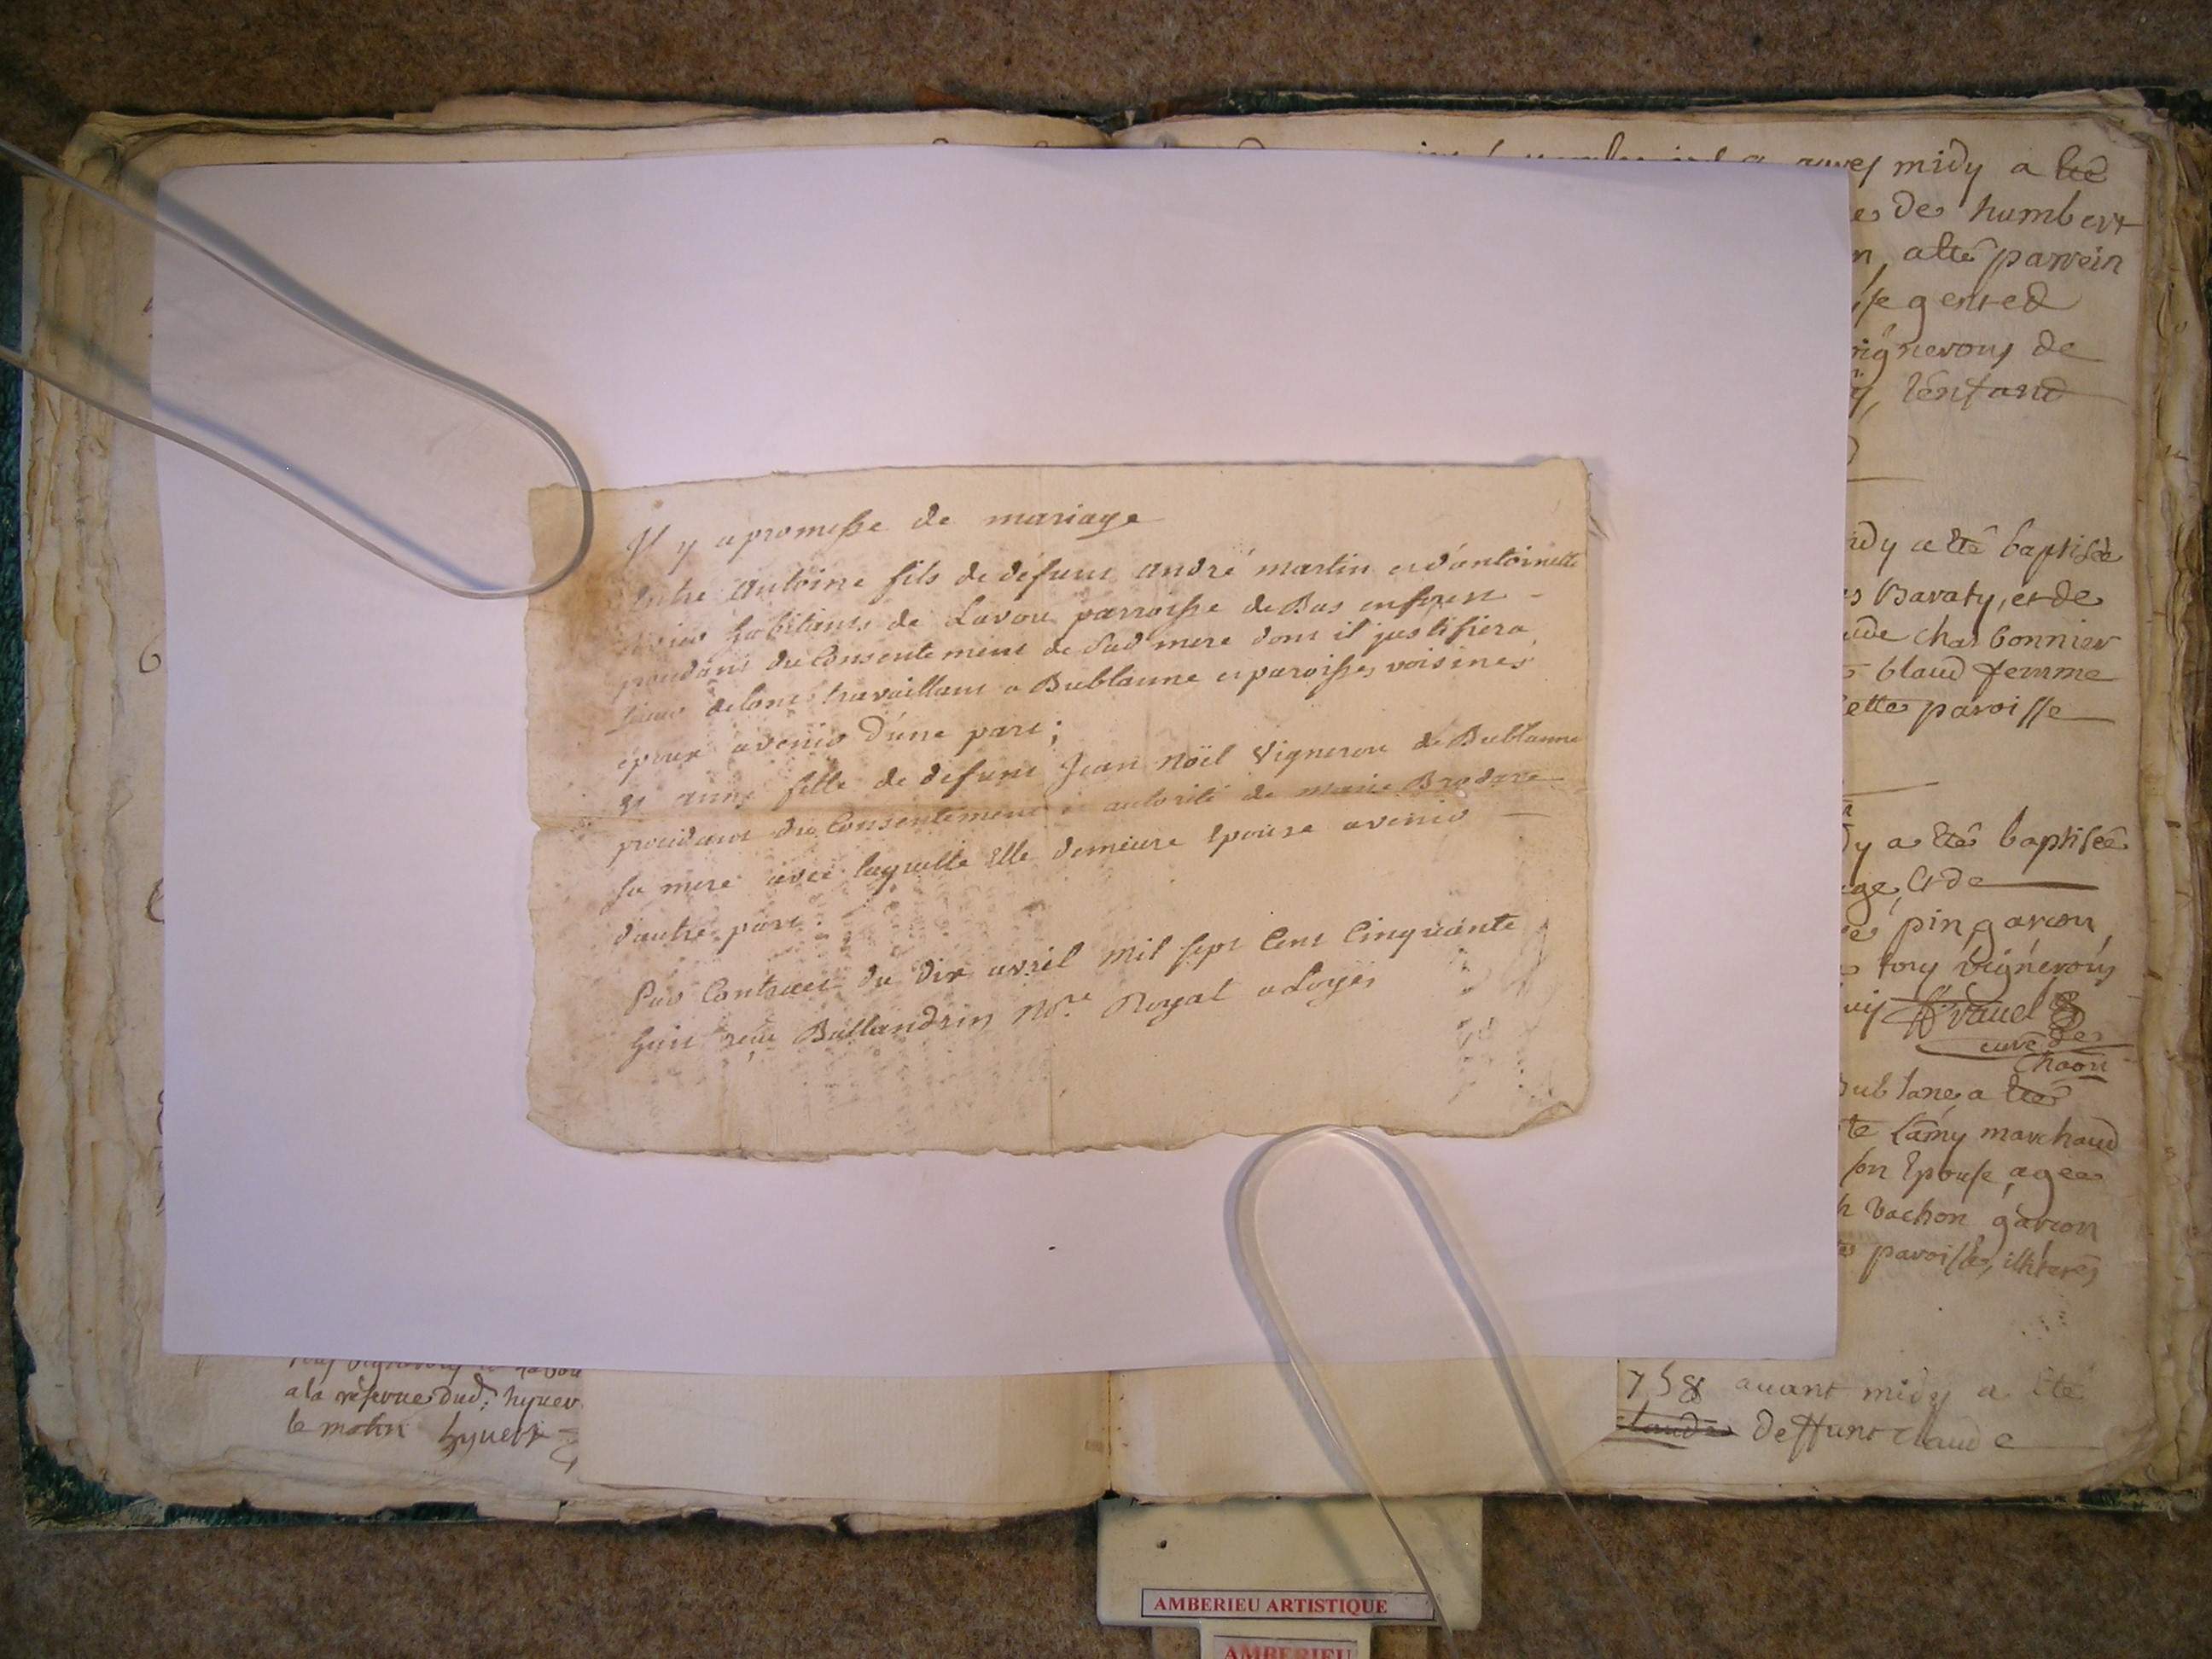 Il y a promesse de mariage
Entre Antoine fils de défunt andré martin et d'antoinette
habitants de Lavou parroisse de Bas en forest
procédant du Consentement de sad mere dont il justifiera
de long travaillant a Bublanne et paroisses voisines
epoux avenir d'une part;
Et anne fille de défunt Jean Noël Vigneron de Bublanne
procédant du Consentement et autorité de marie Brodare
sa mere avec laquelle Elle demeure Epouse avenir
d'autre part.
Par Contract du dix avril mil sept Cent Cinquante
huit reçu Ballandrin No.re Royal a Loyes
apres midy a été
de humbert
a été parrein
gented
vignerons de
l'enfand
a été baptisée
Baraty, et de
charbonnier
blaud femme
cette paroisse
a été baptisée
et de
pin garcon
tory vignerons
curé de
Chaon
Bublane a été
Lamy marchand
son Epouse, agee
vachon garcon
paroisse, illiteres
758 avant midy a été
claude deffunt claude
a la reserve dud. hyver
le matin hyvert
AMBERIEU ARTISTIQUE
AMBERIEU